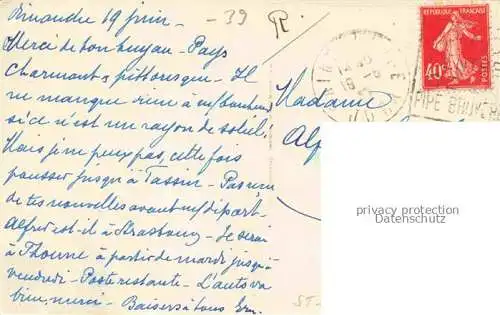 Dimanche 19 juin -
- 39
R
Merci de ton tuyau - Pays
charmant & pittoresque - Il
ne manque rien à
si ce n'est un rayon de soleil.
Mais je ne peux pas, cette fois
pousser jusqu'à Tassin - Pas reçu
de tes nouvelles avant départ -
Alfred est-il à Strasbourg - Je serai
à Thoune à partir de mardi jusqu'à
vendredi - Poste restante - L'auto va
bien, merci - Baisers à tous
Madame
Alf
RÉPUBLIQUE FRANÇAISE
40c
POSTES
PIPE
ST-
privacy protection